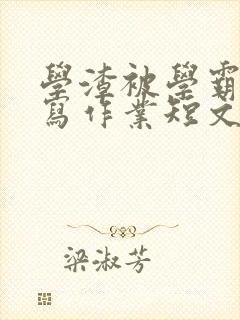 學渣被學霸
寫作業短文
梁淑芳